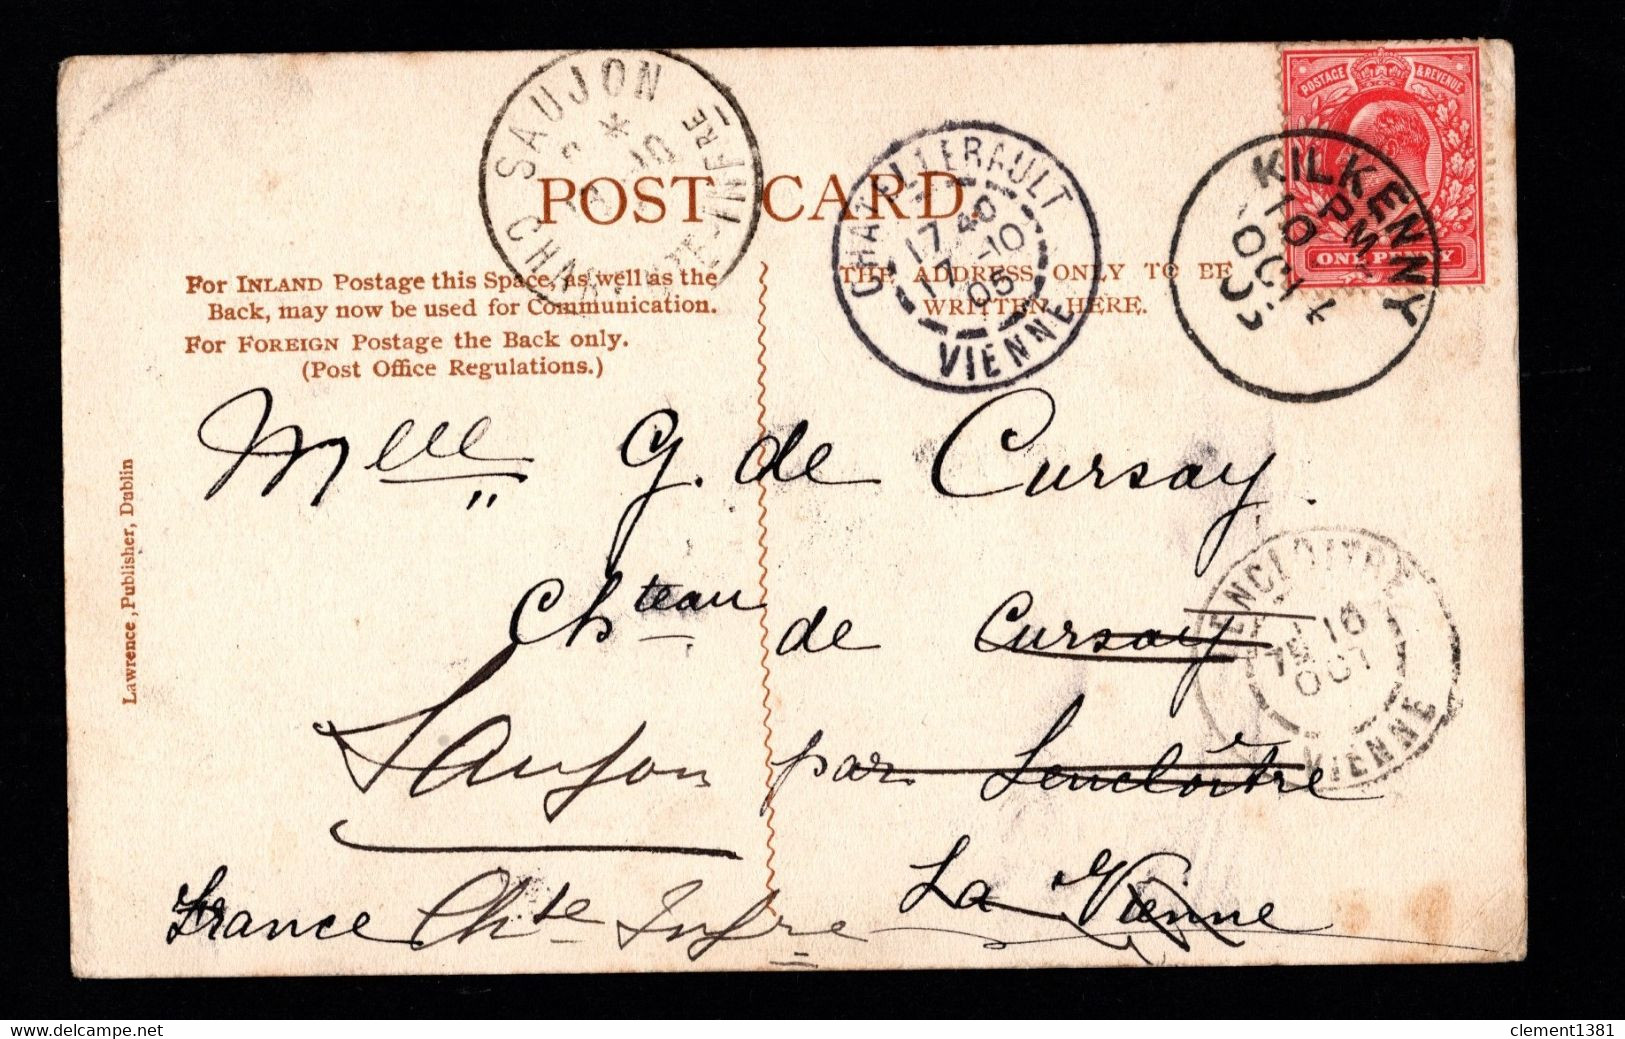 POSTAGE & REVENUE
ONE PENNY
KILKENNY
10 PM
OC 14
05
SAUJON
CH INFRE
CHATELLERAULT
17 40
17 -10
05
VIENNE
POST CARD.
For INLAND Postage this Space, as well as the
Back, may now be used for Communication.
For FOREIGN Postage the Back only.
(Post Office Regulations.)
THE ADDRESS ONLY TO BE
WRITTEN HERE.
Lawrence, Publisher, Dublin
Melle G. de Cursay.
Chteau de Cursay
Saujon par Lencloître
La Vienne
France Chte Infre
LENCLOITRE
16
OCT
VIENNE
clement1381